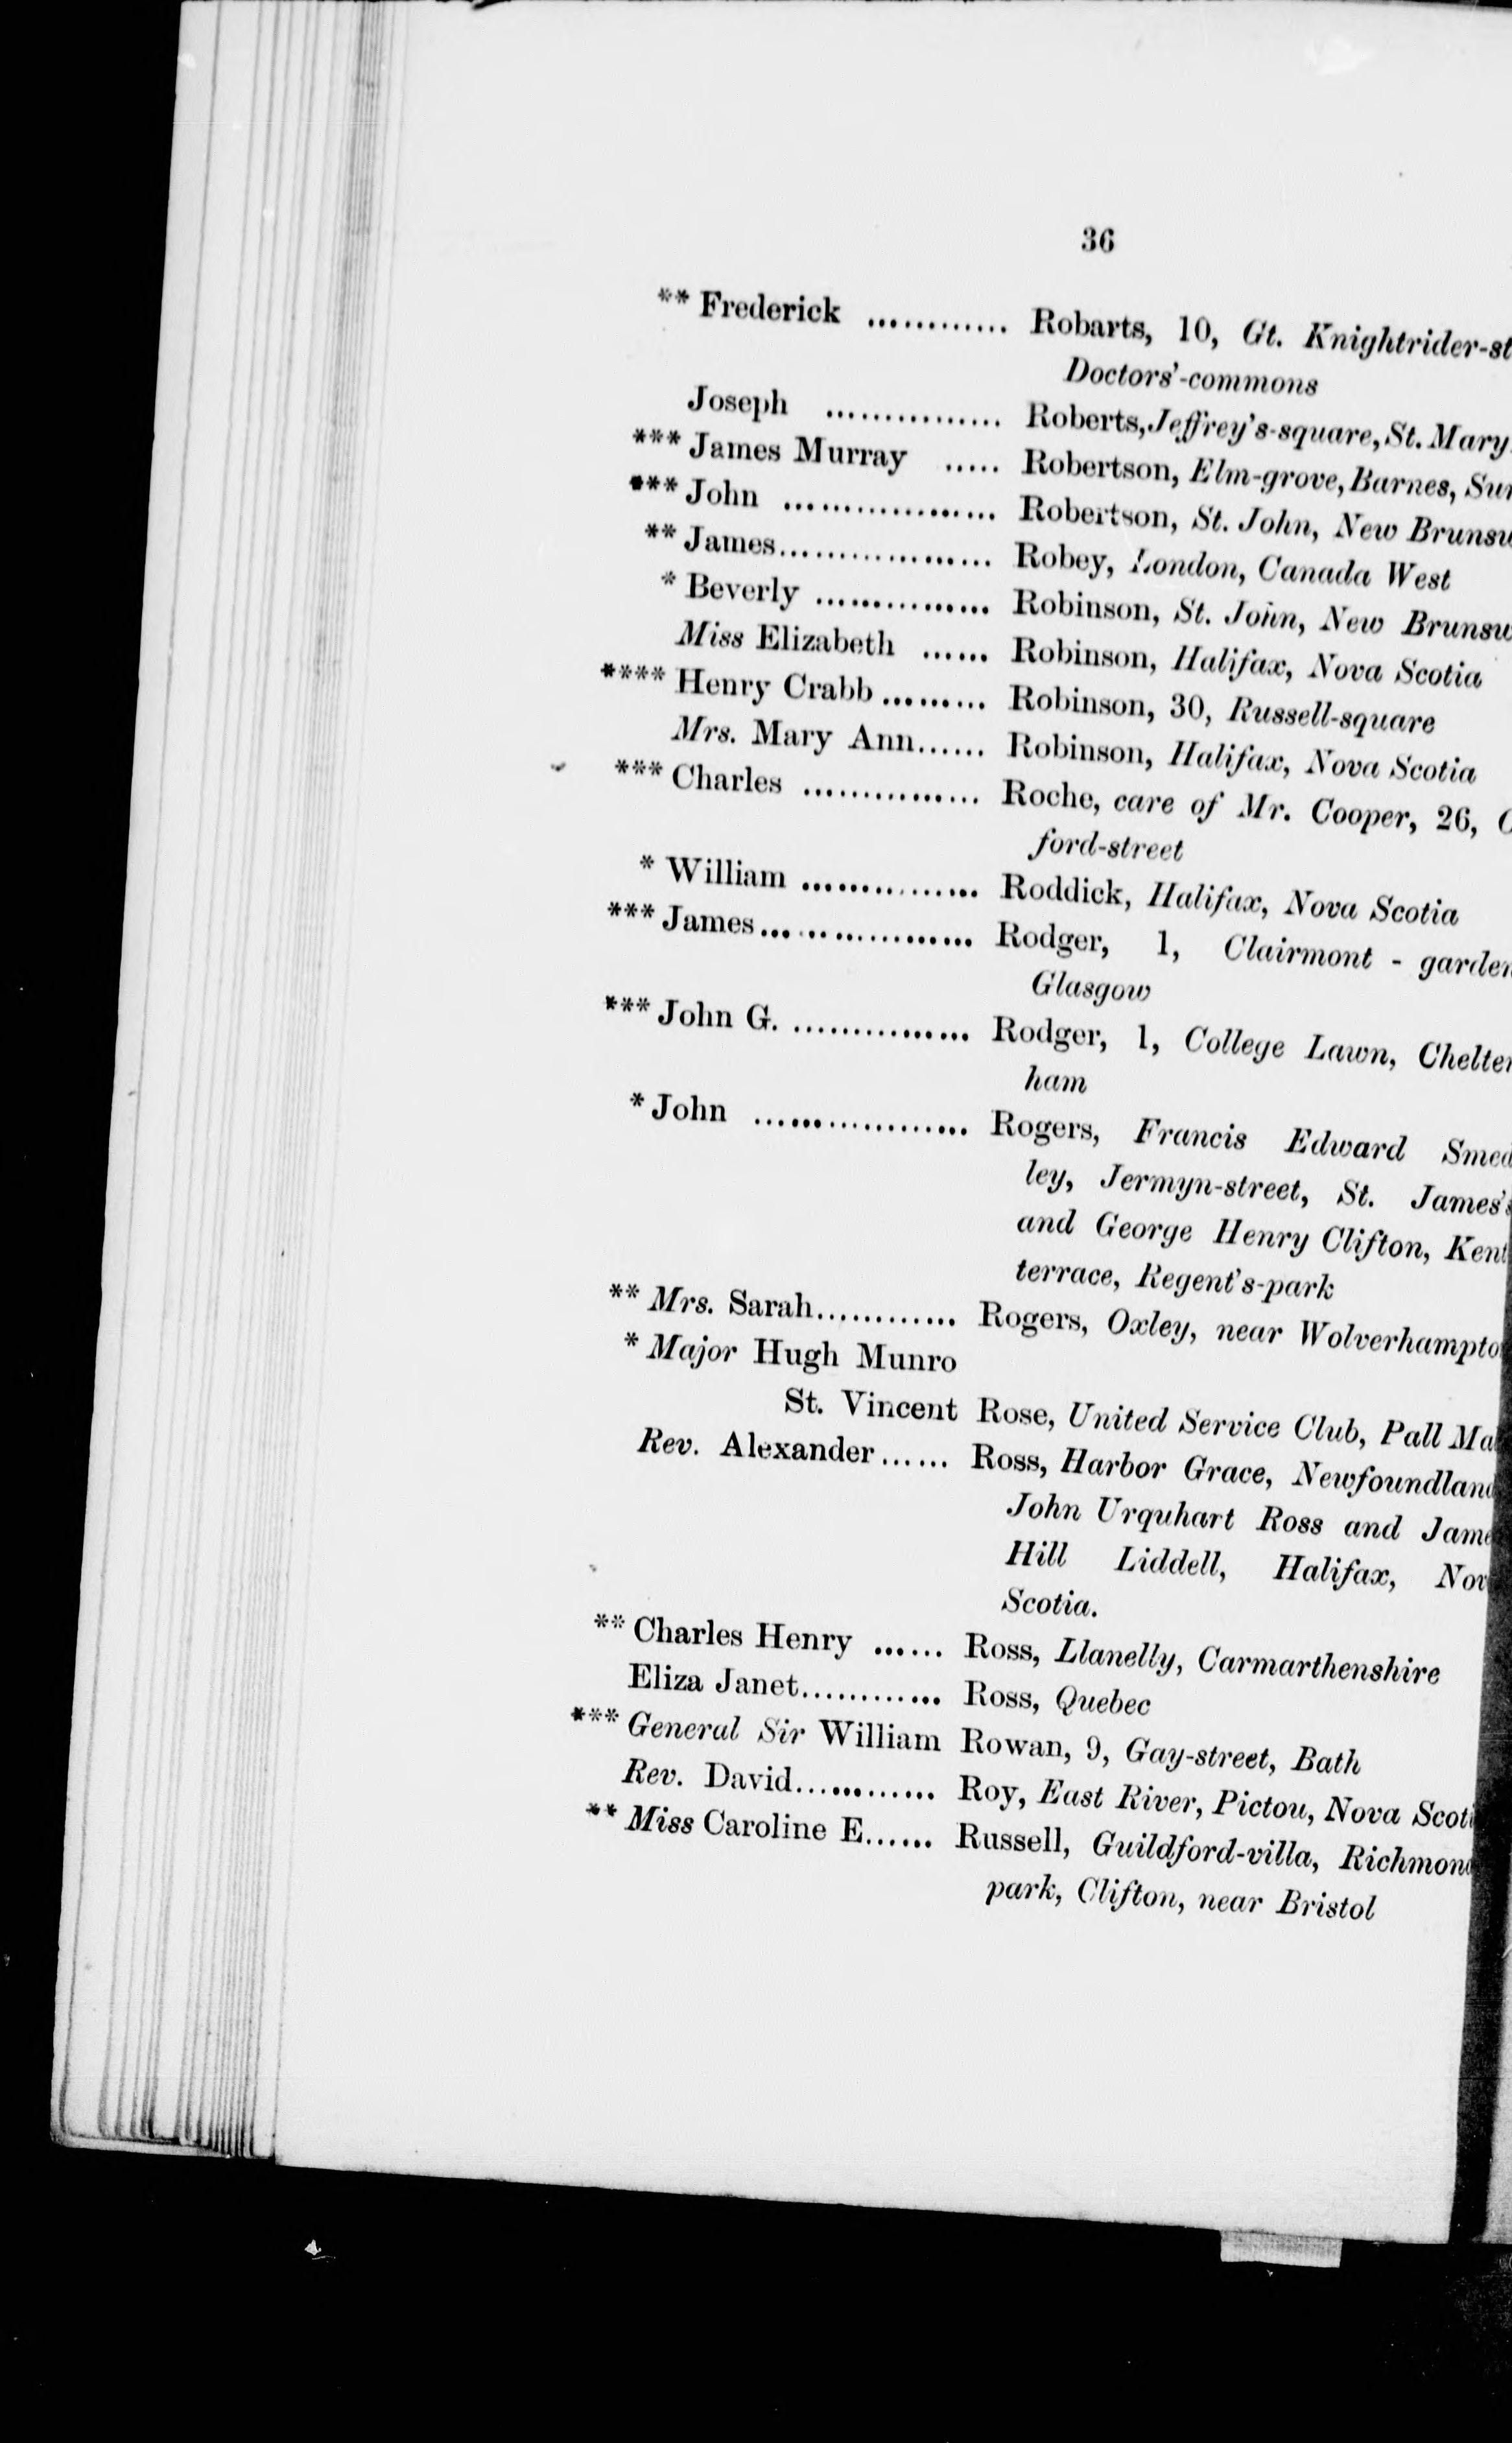 36
** Frederick ............ Robarts, 10, Gt. Knightrider-st
Doctors'-commons
Joseph ............... Roberts, Jeffrey's-square, St. Mary
*** James Murray ..... Robertson, Elm-grove, Barnes, Sur
*** John .................. Robertson, St. John, New Brunsw
** James.................. Robey, London, Canada West
* Beverly ............... Robinson, St. John, New Brunsw
Miss Elizabeth ...... Robinson, Halifax, Nova Scotia
**** Henry Crabb ......... Robinson, 30, Russell-square
Mrs. Mary Ann...... Robinson, Halifax, Nova Scotia
*** Charles ............... Roche, care of Mr. Cooper, 26,
ford-street
* William ............... Roddick, Halifax, Nova Scotia
*** James.................. Rodger, 1, Clairmont - garden
Glasgow
*** John G. ............... Rodger, 1, College Lawn, Chelten
ham
* John .................. Rogers, Francis Edward Smed
ley, Jermyn-street, St. James's
and George Henry Clifton, Kent
terrace, Regent's-park
** Mrs. Sarah............ Rogers, Oxley, near Wolverhampto
* Major Hugh Munro
St. Vincent Rose, United Service Club, Pall Mal
Rev. Alexander...... Ross, Harbor Grace, Newfoundland
John Urquhart Ross and Jame
Hill Liddell, Halifax, Nov
Scotia.
** Charles Henry ...... Ross, Llanelly, Carmarthenshire
Eliza Janet............ Ross, Quebec
*** General Sir William Rowan, 9, Gay-street, Bath
Rev. David............ Roy, East River, Pictou, Nova Scoti
** Miss Caroline E...... Russell, Guildford-villa, Richmond
park, Clifton, near Bristol